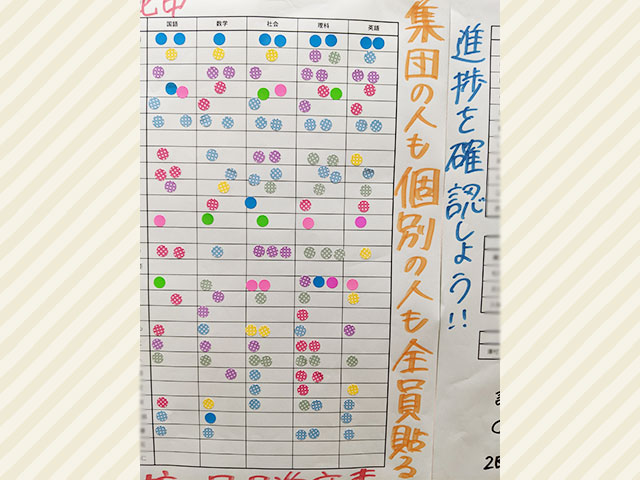 国語 数学 社会 理科 英語
進捗を確認しよう!!
集団の人も個別の人も全員貼る